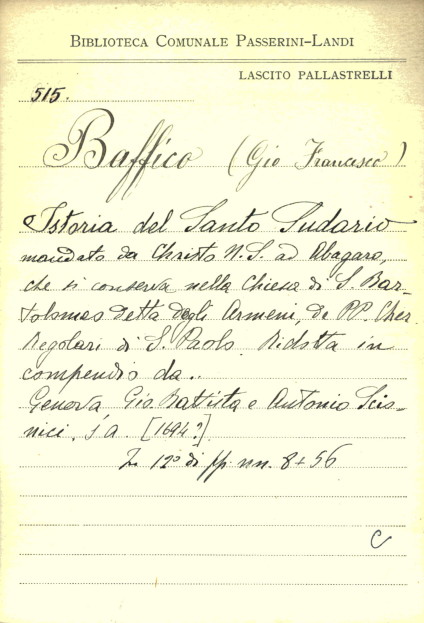 BIBLIOTECA COMUNALE PASSERINI-LANDI
LASCITO PALLASTRELLI
515.
Baffico (Gio Francesco)
Istoria del Santo Sudario
mandato da Christo N. S. ad Abagaro,
che si conserva nella Chiesa di S. Bar-
tolomeo detta degli Armeni, de PP. Cher.
Regolari di S. Paolo. Ridotta in
compendio da..
Genova, Gio. Battista e Antonio Scio-
nici, s a. [1694?]
In 12° di pp. nn. 8+56
C